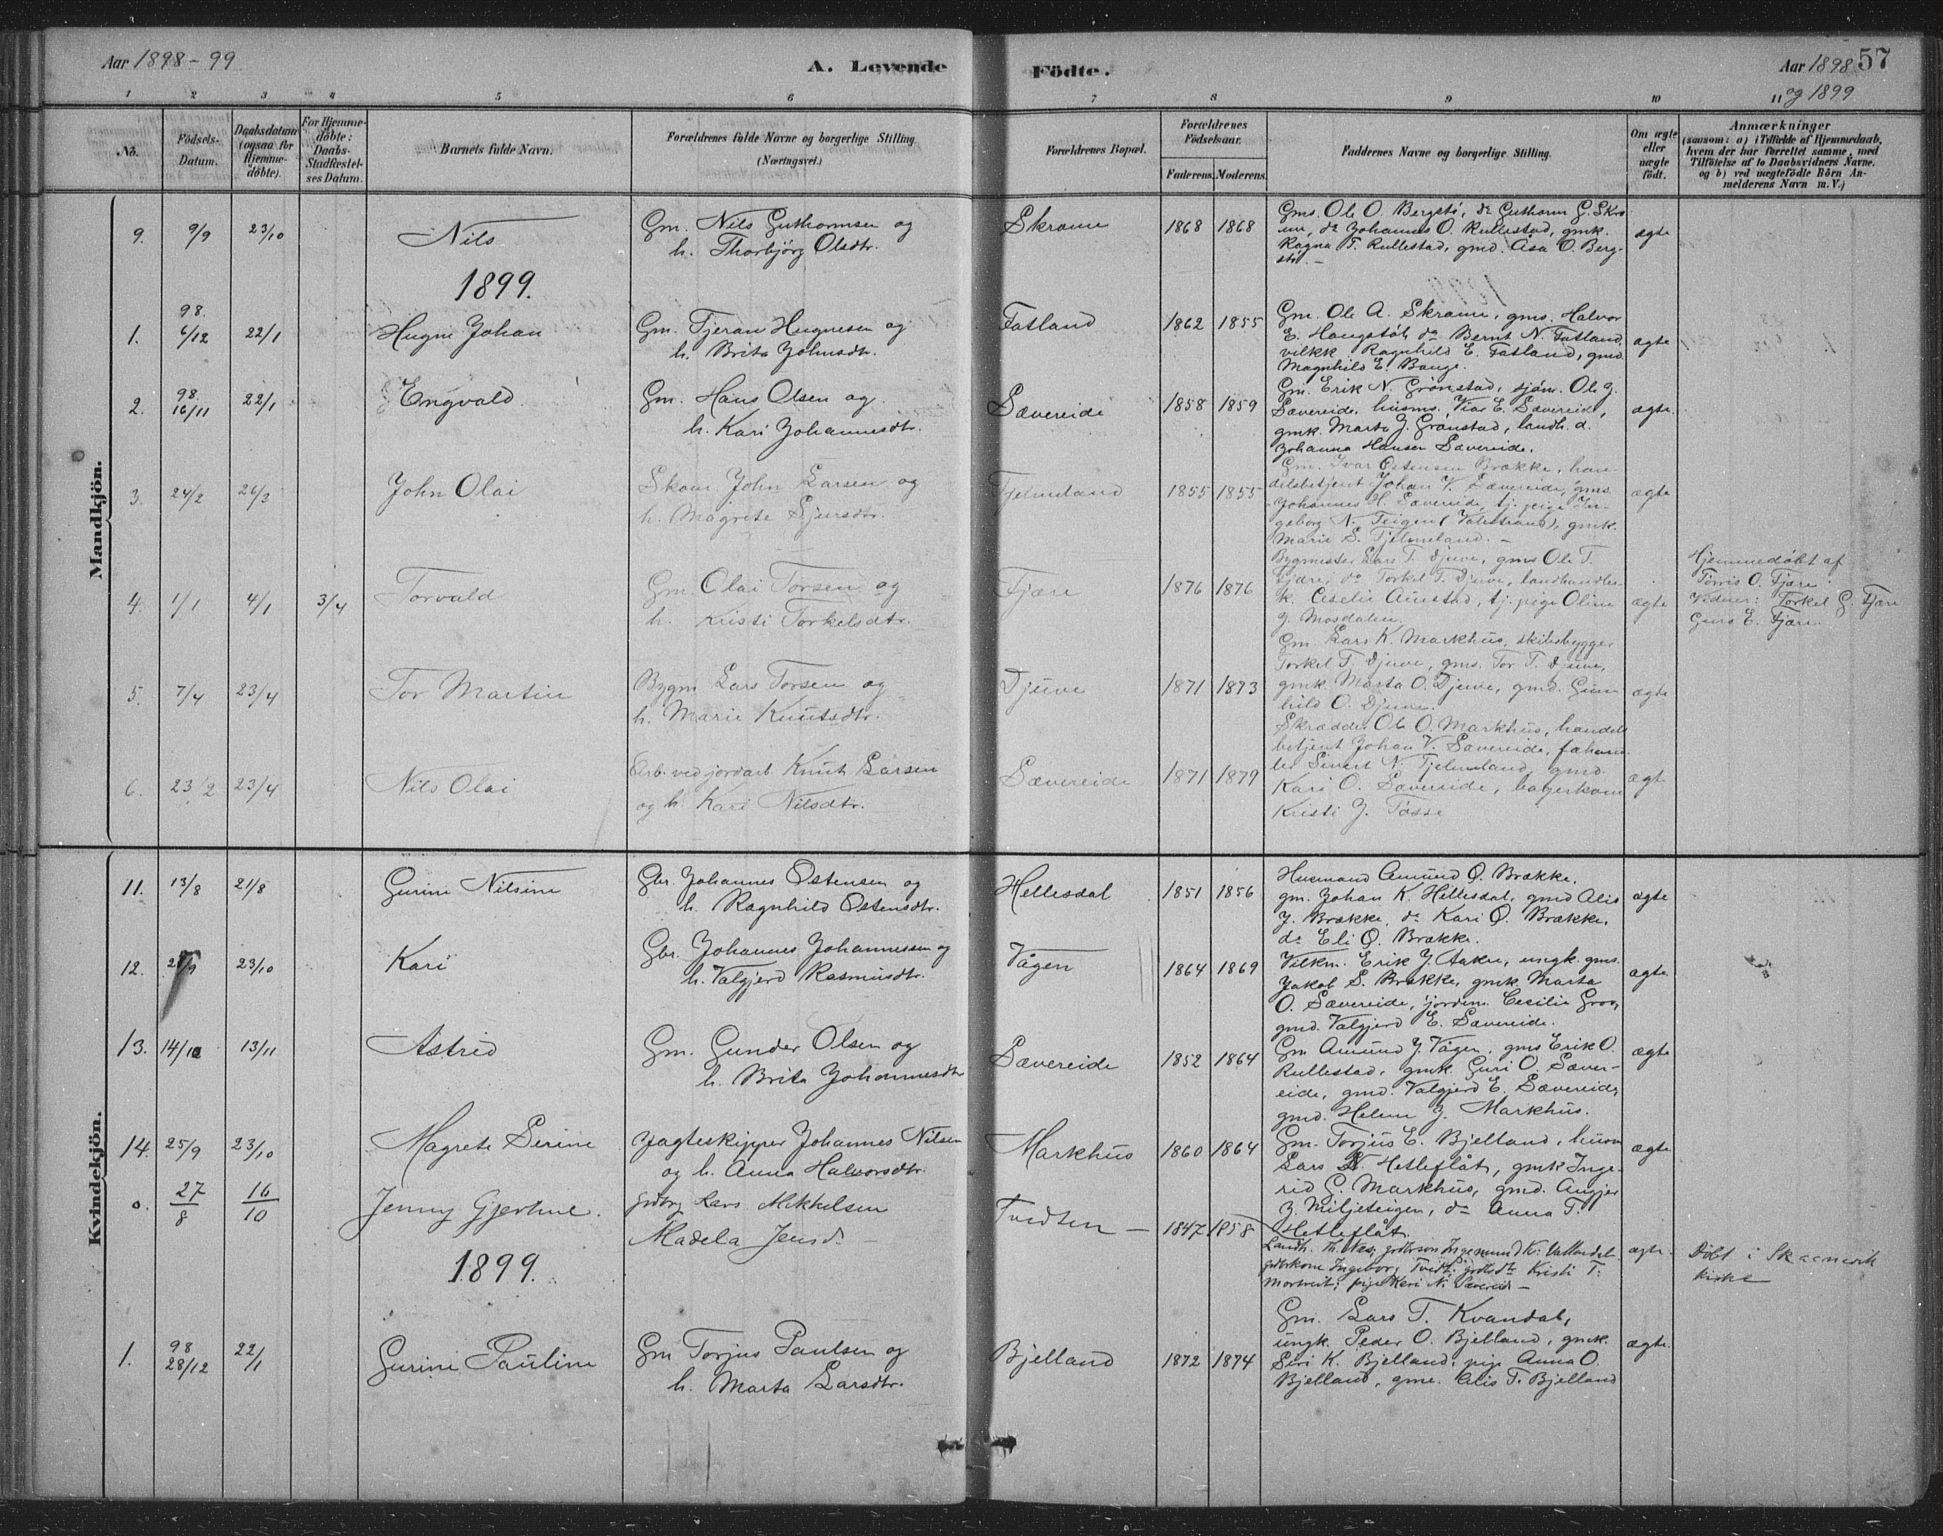 Aar 1898-99
A. Levende
Födte.
Aar 1898 57
og 1899
1 2 3 4 5 6 7 8 9 10 11
No.
Födsels-
Datum.
Daabsdatum
(ogsaa for
Hjemme-
döbte).
For Hjemme-
döbte:
Daabs-
Stadfæstel-
ses Datum.
Barnets fulde Navn.
Forældrenes fulde Navne og borgerlige Stilling
(Næringsvei.)
Forældrenes Bopæl.
Forældrenes
Födselsaar.
Faderens. Moderens.
Faddernes Navne og borgerlige Stilling.
Om ægte
eller
uægte
födt.
Anmærkninger
(saasom: a) i Tilfælde af Hjemmedaab,
hvem der har forrettet samme, med
Tilföielse af to Daabsvidners Navne,
og b) ved uægtefödte Börn An-
melderens Navn m. V.)
Mandkjön.
9. 9/9 23/10 Nils
Gm. Nils Guthormsen og
h. Thorbjörg Olsdtr.
Skromme 1868 1868
Gms. Ole O. Bergstö, do Guthorm G. Skro
me, do Johannes O. Rullestad, gmk.
Ragna T. Rullestad, gmd. Åsa O. Berg-
stö. -
ægte
1899.
1. 98. 6/12 22/1 Hugne Johan
Gm. Tjeran Hugnesen og
h. Brita Johnsdtr.
Fatland 1862 1855
Gm. Ole A. Skromme, gms. Halvor
E. Haugstöl, do Bernt N. Fatland,
vilkk. Ragnhild E. Fatland, gmd.
Magnhild E. Bauge.
ægte
2. 98. 16/11 22/1 Engvald
Gm. Hans Olsen og
h. Kari Johannesdtr.
Sævereide 1858 1859
Gm. Erik N. Grönstad, sjöm. Ole J.
Sævereide, husms. Viar E. Sævereide,
gmk. Marta J. Grönstad, landh. d.
Johanna Hansen Sævereide.
ægte
3. 24/2 26/3 John Olai
Skom. John Larsen og
h. Magrete Sjursdtr.
Fjelmeland 1855 1855
Gm. Ivar Östensen Brække, han-
delsbetjent Johan V. Sævereide, gms.
Johannes H. Sævereide, tj. pige In-
geborg N. Teigen (Valestrand), gmk.
Marie S. Fjelmeland. -
ægte
4. 1/1 4/1 3/4 Torvald
Gm. Olai Torsen og
h. Kristi Torkelsdtr.
Fjære 1876 1876
Bygmester Lars T. Djuve, gms Ole T.
Fjære, do Torkel T. Djuve, landhandler-
k. Ceselie Aunstad, tj. pige Oline
J. Mosdalen.
ægte
Hjemmedöbt af
Torris O. Fjære.
Vidner: Torkel G. Fjære
Guro E. Fjære.
5. 7/4 23/4 Tor Martin
Bygm. Lars Torsen og
h. Marie Knutsdtr.
Djuve 1871 1873
Gm. Lars K. Markhus, skibsbygger
Torkel T. Djuve, gms. Tor T. Djuve,
gmk. Marta O. Djuve, gmd. Gun
hild O. Djuve.
ægte
6. 23/2 23/4 Nils Olai
Arb. ved jordarb. Knut Larsen
og h. Kari Nilsdtr.
Sævereide 1871 1879
Skrædder Ole O. Markhus, handels
betjent Johan V. Sævereide,
Sivert N. Fjelmeland, gmd.
Kari O. Sævereide, bagerkone
Kristi J. Tösse
ægte
Kvindekjön.
11. 13/8 21/8 Gurine Nilsine
Gbr. Johannes Östensen og
h. Ragnhild Östensdtr.
Hellesdal 1851 1856
Husmand Amund Ö. Brække,
gm. Johan K. Hellesdal, gmd Alis
J. Brække, do Kari Ö. Brække,
do Eli Ö. Brække.
ægte
12. 23/10 Kari
Gbr. Johannes Johannessen og
h. Valgjerd Rasmusdtr.
Vågen 1864 1869
Vilkm. Erik J. Aakre, ungk. gms.
Jakob S. Brække, gmk. Marta
O. Sævereide, jordem. Cecilie Groo,
gmd. Valgjerd E. Sævereide.
ægte
13. 14/10 13/11 Astrid
Gm. Gunder Olsen og
h. Brita Johannesdtr
Sævereide 1852 1864
Gm Amund J. Vågen, gms Erik O.
Rullestad, gmk. Guri O. Sæver-
eide, gmd. Valgjerd E. Sævereide,
gmd. Helene J. Markhus.
ægte
14. 25/9 23/10 Magrete Serine
Jagteskipper Johannes Nilsen
og h. Anna Halvorsdtr.
Markhus 1860 1864
Gm. Torjus E. Bjelland, husm
Lars N. Hetleflåt, gmk Inge-
rid S. Markhus, gmd. Angjer
Z. Miljeteigen, do Anna T.
Hetleflåt.
ægte
o. 27/8 16/10 Jenny Gjertine.
grdbrg Lars Mikkelsen
Madela Jensd. -
Tvedten - 1847 1858
Landh. Th. Næs, grdbrson Ingemund K: Vallandet
grdbrkone Ingeborg Tvedt: grdbdtr Kristi T:
Mortveit; pige Kari N. Sævereide -
ægte.
Döbt i Skaanevik
kirke
1899.
1. 98 28/12 22/1 Gurine Pauline
Gm Torjus Paulsen og
h. Marta Larsdtr.
Bjelland 1872 1874
Gm. Lars T. Kvandal,
ungk. Peder O. Bjelland, gmk.
Siri K. Bjelland, pige Anna O.
Bjelland, gme. Alis T. Bjelland
ægte